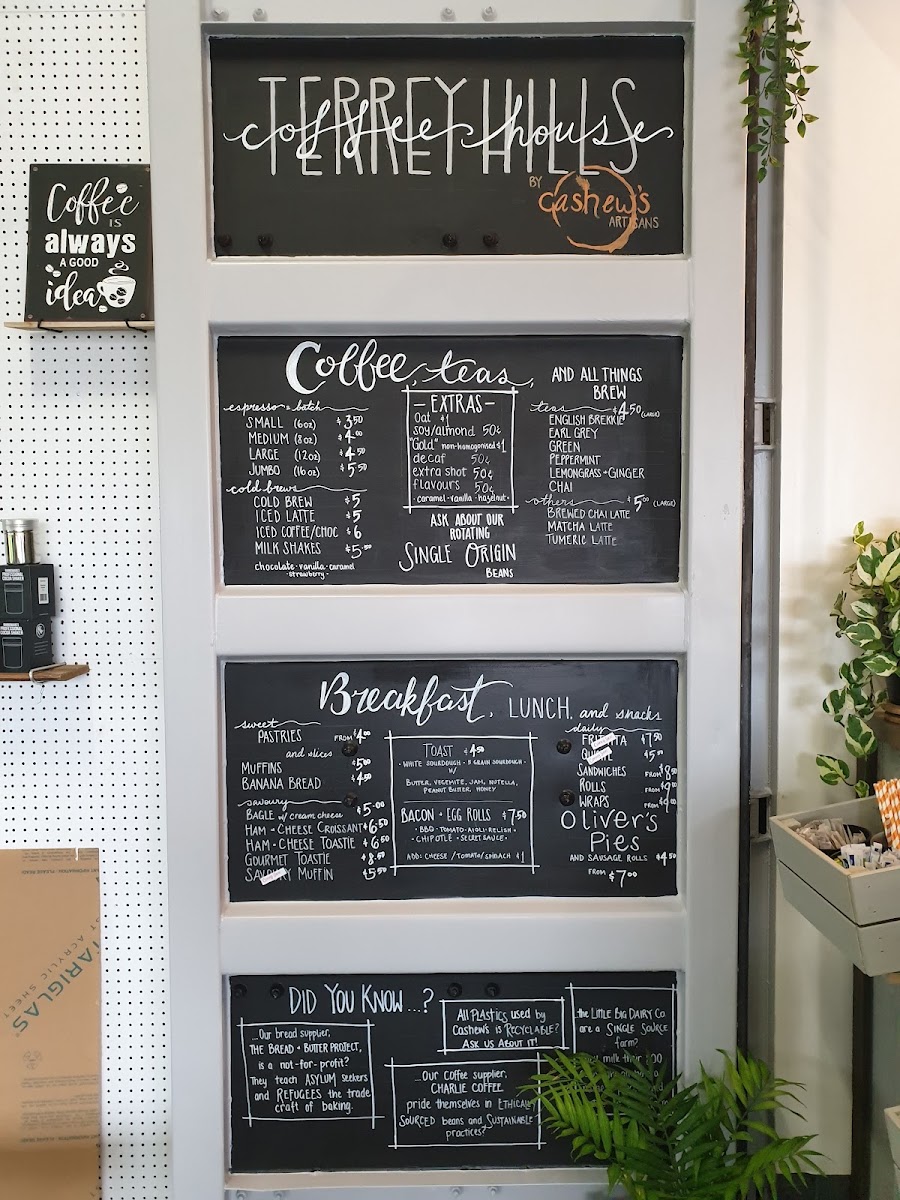 TERREY HILLS
coffee house
BY
Cashew's
ARTISANS
Coffee
IS
always
A GOOD
idea
Coffee, teas,
AND ALL THINGS
BREW
espresso & batch
SMALL (6oz) $3.50
MEDIUM (8oz) $4.00
LARGE (12oz) $4.50
JUMBO (16oz) $5.50
cold brews
COLD BREW $5
ICED LATTE $5
ICED COFFEE/CHOC $6
MILK SHAKES $5.50
chocolate · vanilla · caramel
· strawberry ·
– EXTRAS –
Oat $1
soy/almond 50¢
"Gold" non-homogonised $1
decaf 50¢
extra shot 50¢
flavours 50¢
· caramel · vanilla · hazelnut ·
ASK ABOUT OUR
ROTATING
SINGLE ORIGIN
BEANS
teas $4.50 (LARGE)
ENGLISH BREKKIE
EARL GREY
GREEN
PEPPERMINT
LEMONGRASS + GINGER
CHAI
others $5.00 (LARGE)
BREWED CHAI LATTE
MATCHA LATTE
TUMERIC LATTE
Breakfast, LUNCH, and snacks
sweet
PASTRIES FROM $4.00
and slices
MUFFINS $5.00
BANANA BREAD $4.50
savoury
BAGLE w/ cream cheese $5.00
HAM + CHEESE CROISSANT $6.50
HAM + CHEESE TOASTIE $6.50
GOURMET TOASTIE $8.50
SAVOURY MUFFIN $5.50
TOAST $4.50
· WHITE SOURDOUGH · 5 GRAIN SOURDOUGH ·
W/
BUTTER, VEGEMITE, JAM, NUTELLA,
PEANUT BUTTER, HONEY
BACON + EGG ROLLS $7.50
· BBQ · TOMATO · AIOLI · RELISH ·
· CHIPOTLE · SECRET SAUCE ·
ADD: CHEESE / TOMATO / SPINACH $1
daily
FRITTATA $7.50
QUICHE $5
SANDWICHES FROM $8.50
ROLLS FROM $9.00
WRAPS FROM $9.00
Oliver's
Pies
AND SAUSAGE ROLLS $4.50
FROM $7.00
DID YOU KNOW...?
...Our bread supplier,
THE BREAD + BUTTER PROJECT,
is a not-for-profit?
They teach ASYLUM seekers
and REFUGEES the trade
craft of baking.
All PLASTICS used by
Cashew's is RECYCLABLE?
ASK US ABOUT IT!
...Our Coffee supplier,
CHARLIE COFFEE
pride themselves in ETHICALLY
SOURCED beans and SUSTAINABLE
practices?
...the LITTLE BIG DAIRY Co
are a SINGLE SOURCE
farm?
milk their
TARIGLAS
ACRYLIC SHEET